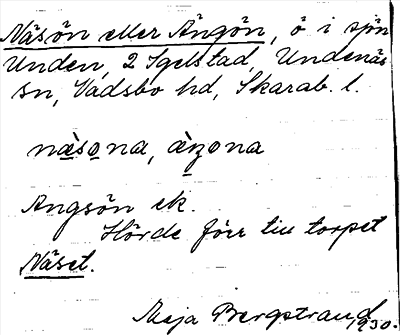 Näsön eller Ängön, ö i sjön
Unden, 2 Igelstad, Undenäs
sn, Vadsbo hd, Skarab. l.
näsona, äŋona
Angsön ek.
Hörde förr till torpet
Näset.
Maja Bergstrand, 1930.